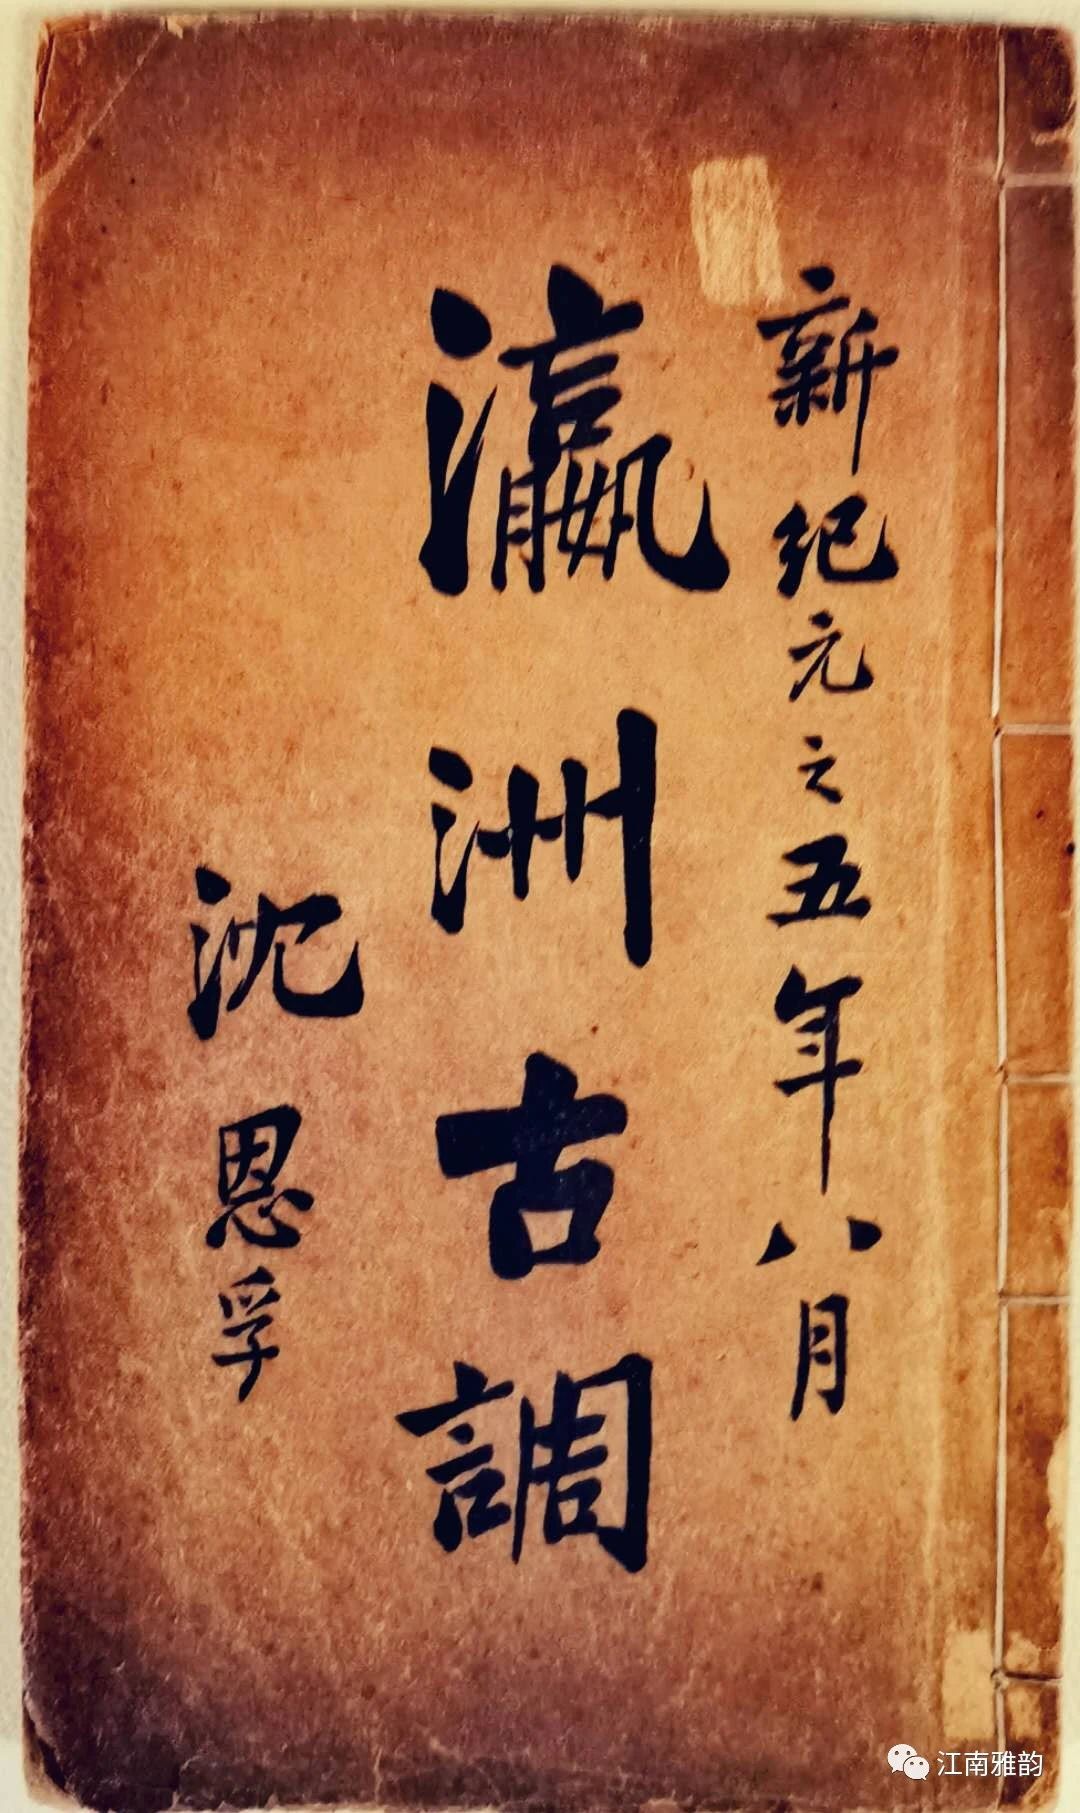 新纪元之五年八月
瀛洲古調
沈恩孚
江南雅韵